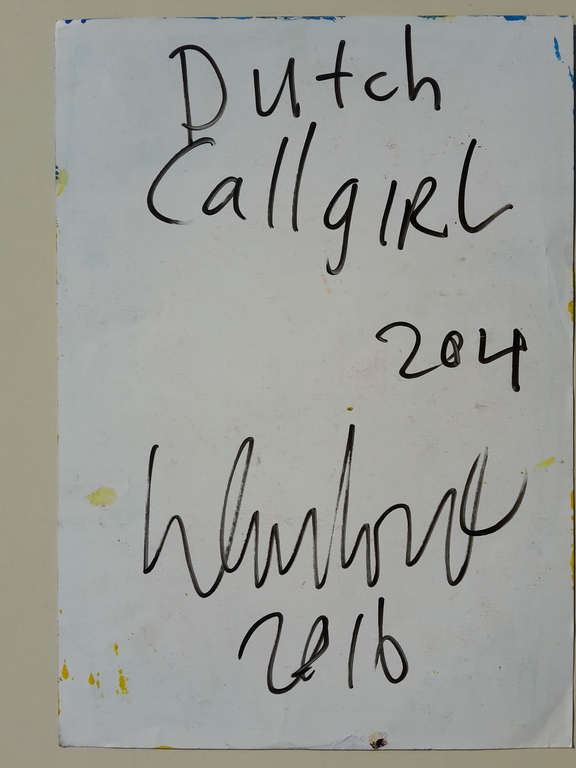 Dutch
CallgIRL
204
2016